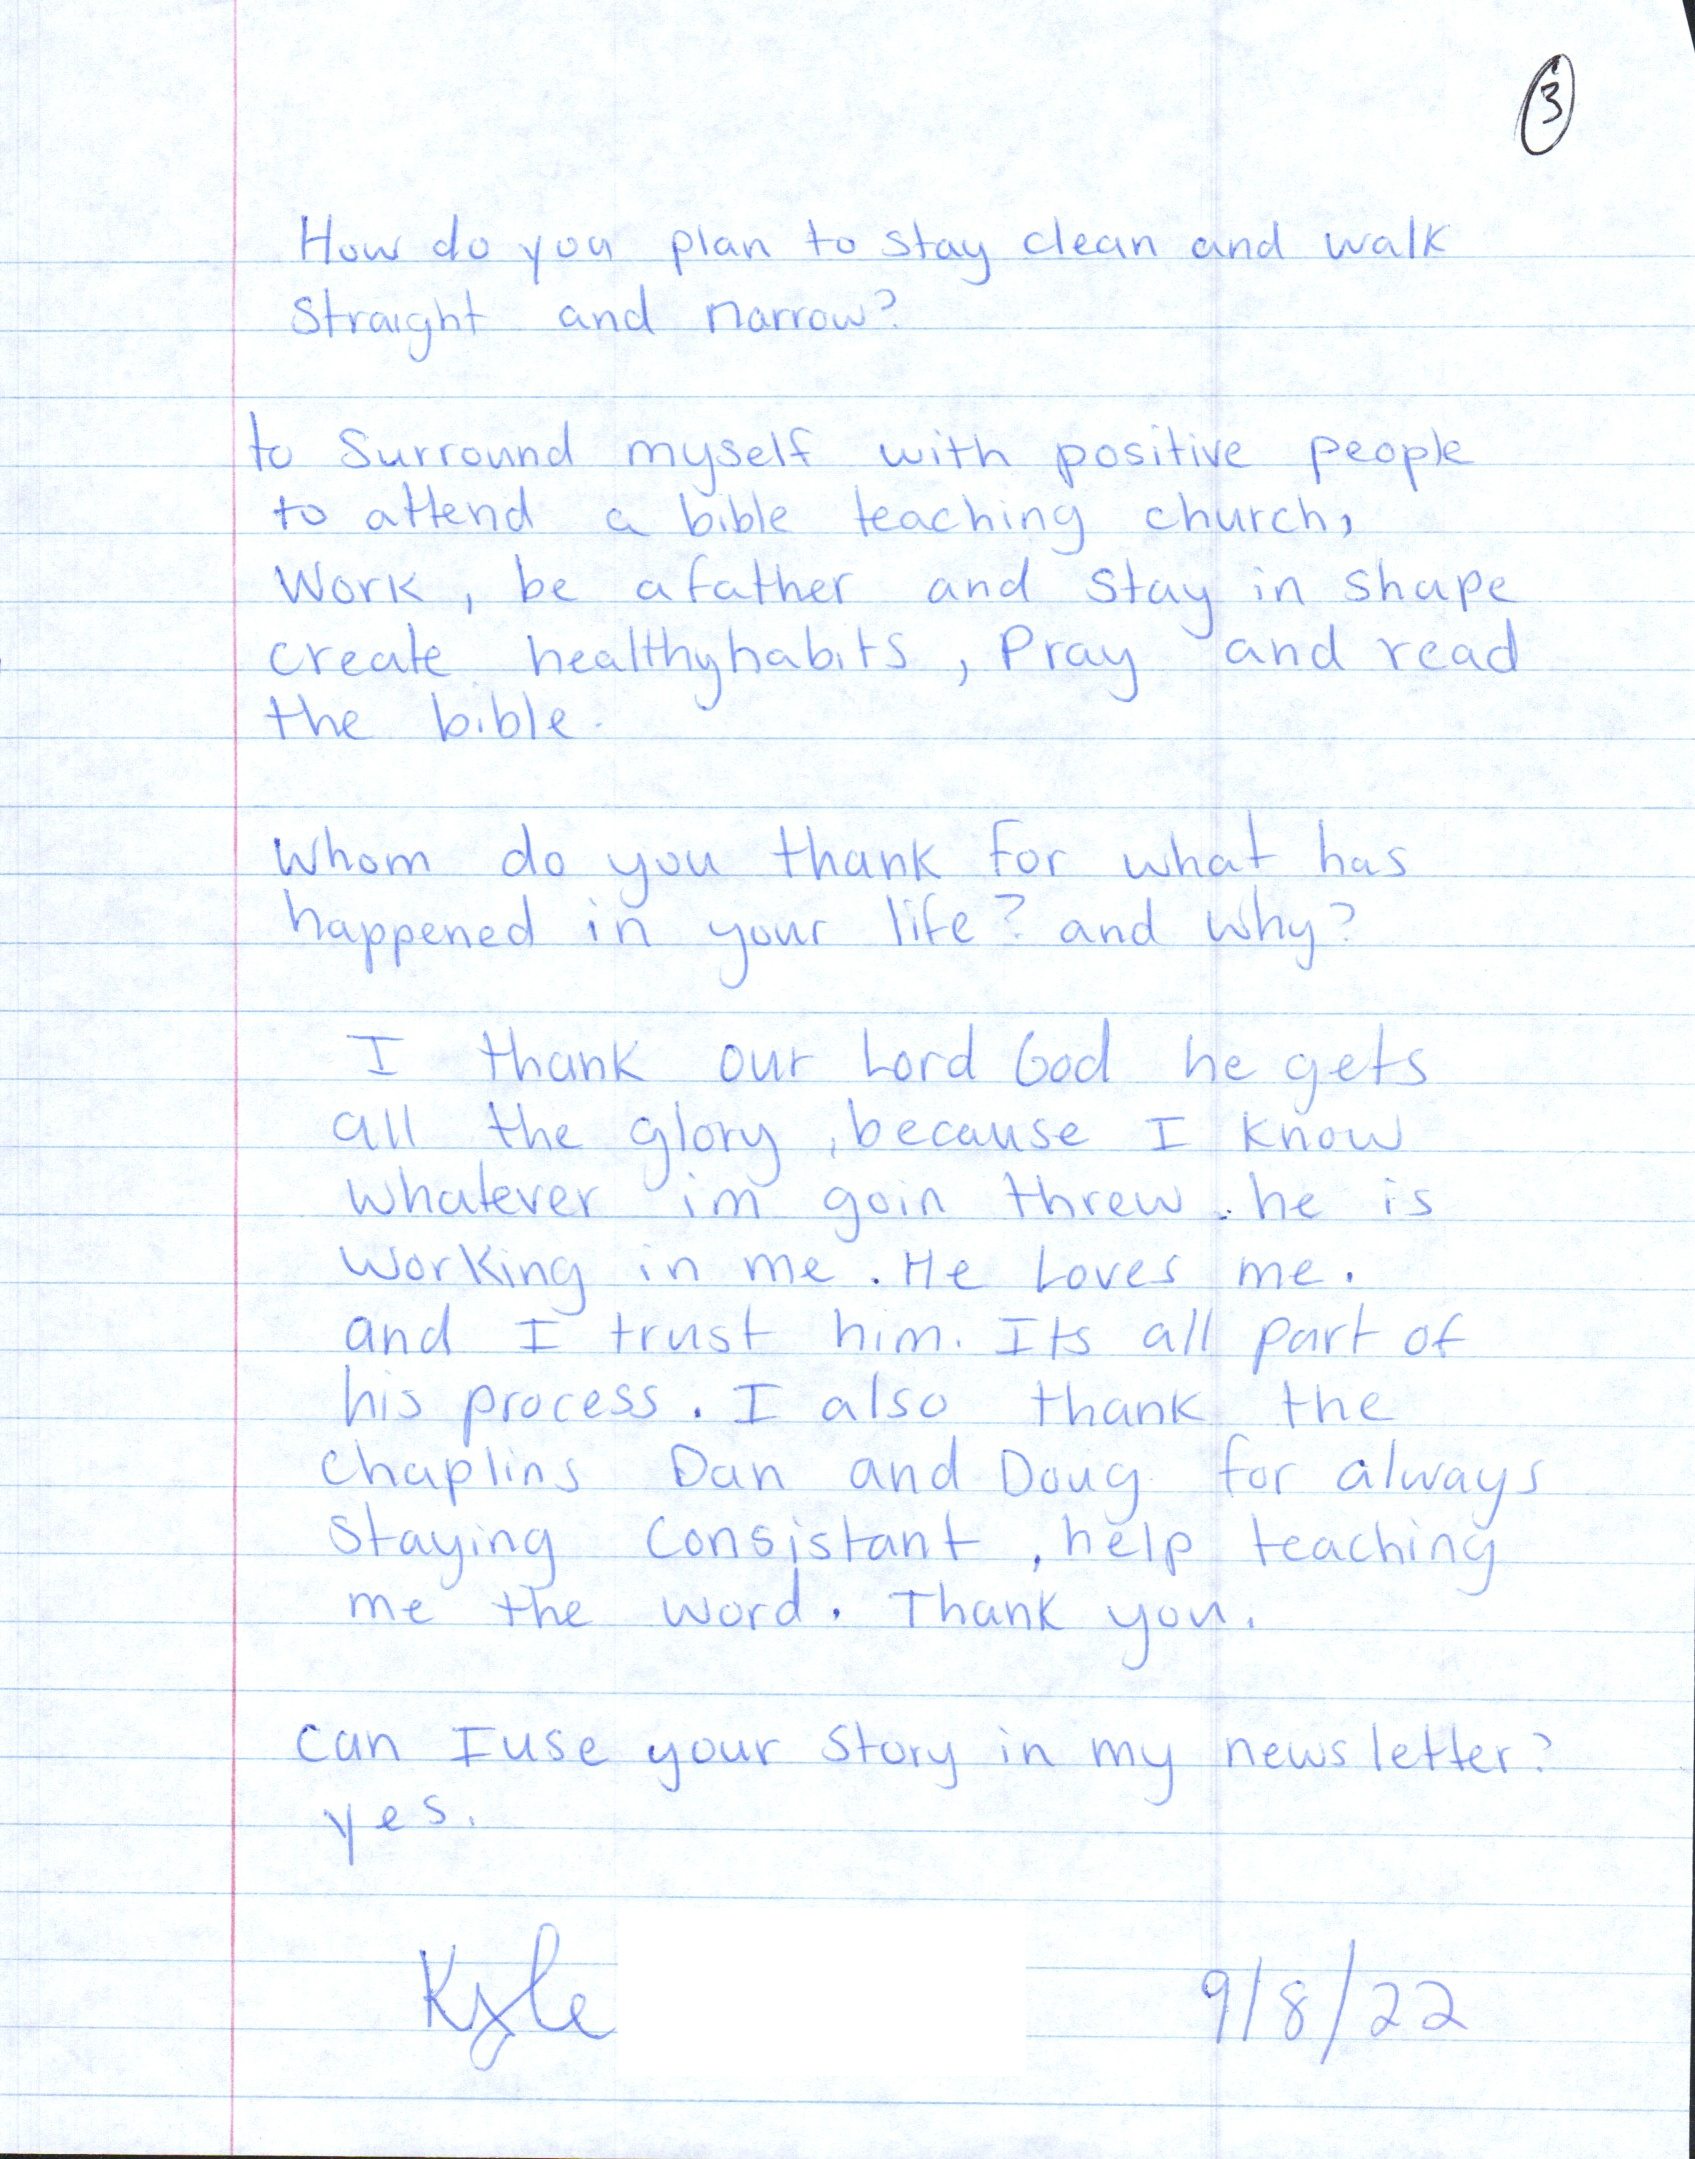 3
How do you plan to stay clean and walk
straight and narrow?
to surround myself with positive people
to attend a bible teaching church,
Work, be a father and stay in shape
create healthyhabits, Pray and read
the bible.
Whom do you thank for what has
happened in your life? and why?
I thank our Lord God he gets
all the glory, because I know
whatever im goin threw. he is
working in me. He Loves me.
and I trust him. Its all part of
his process. I also thank the
chaplins Dan and Doug for always
staying consistant, help teaching
me the word. Thank you.
can I use your story in my newsletter?
yes.
Kyle 9/8/22